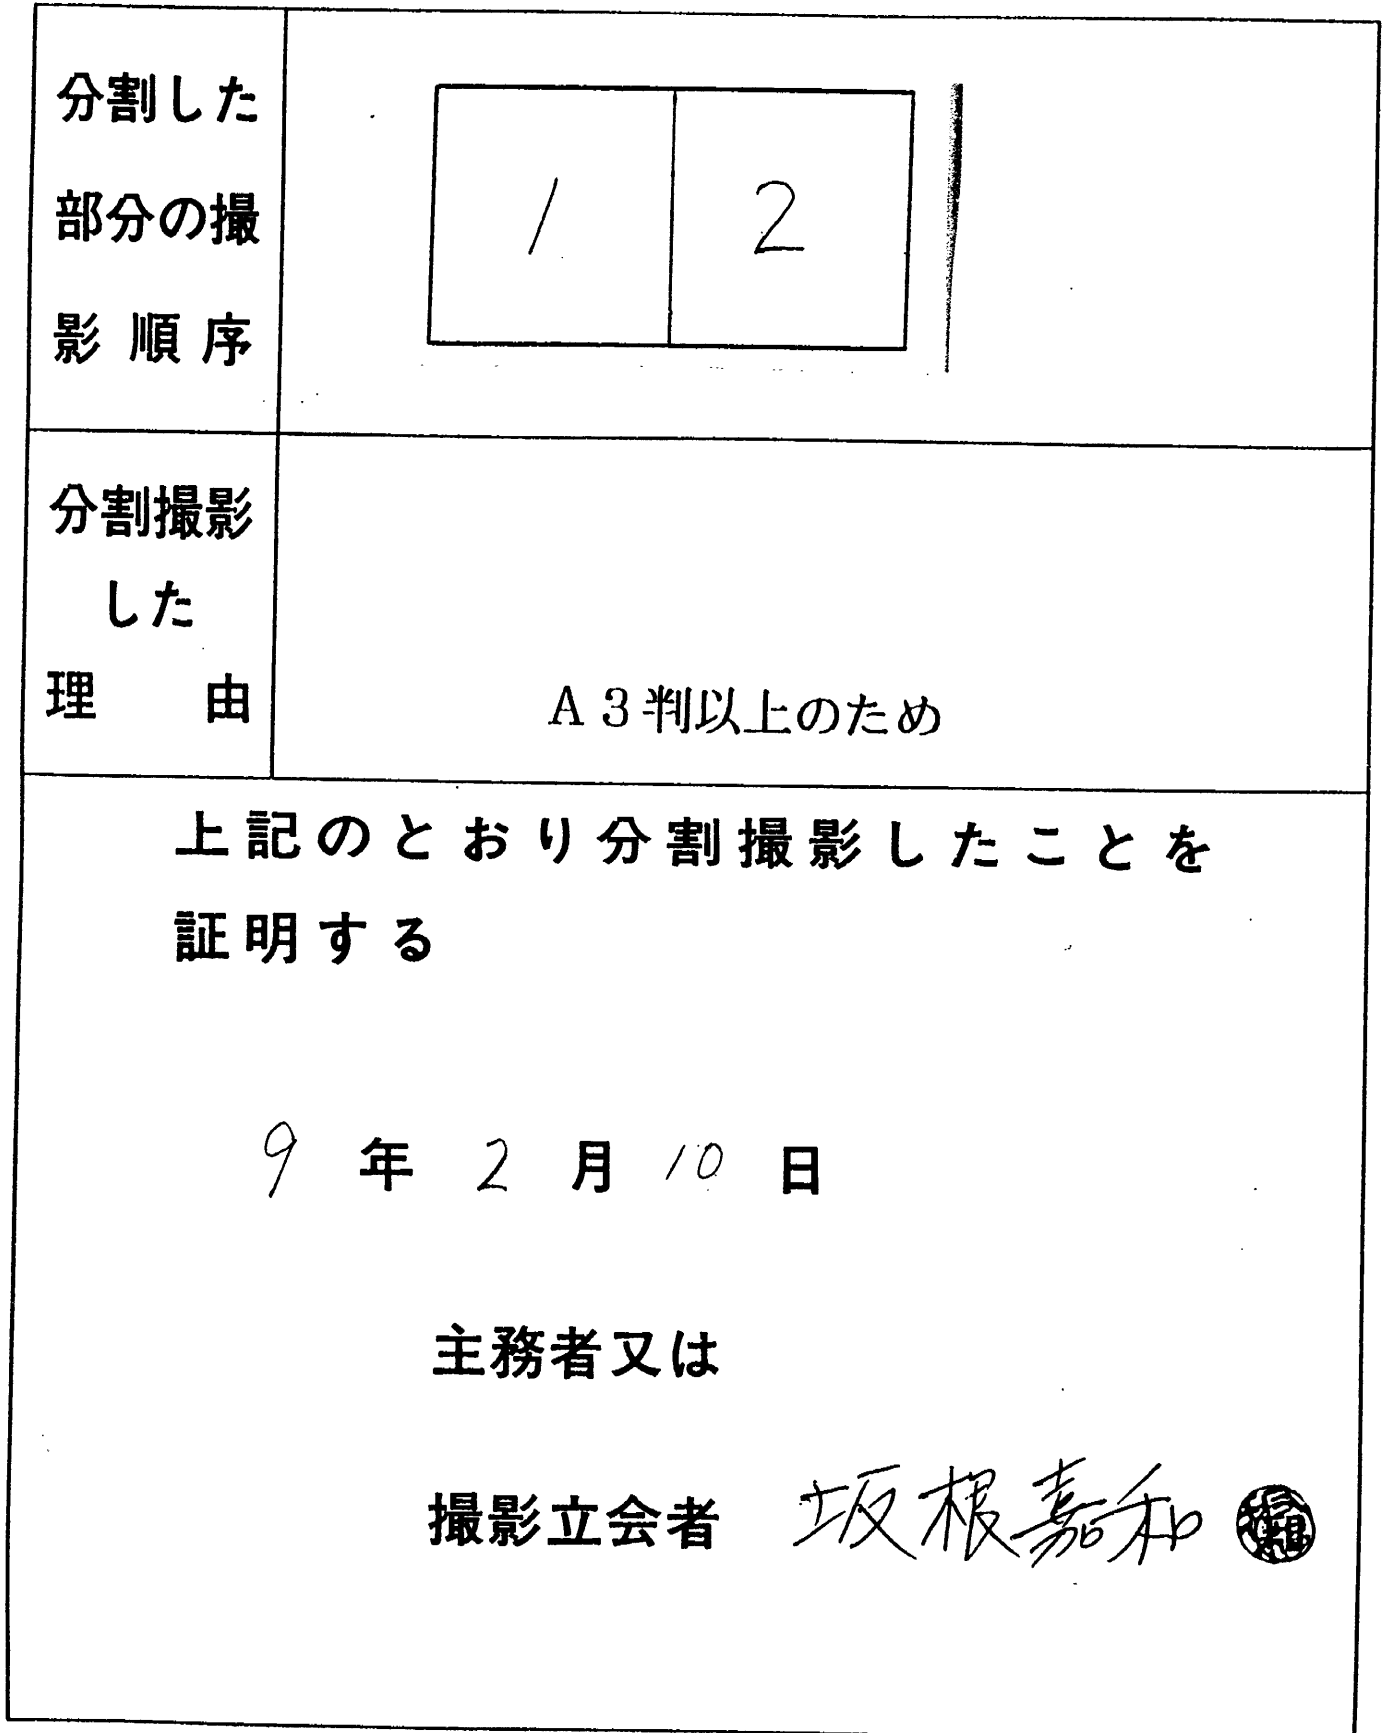 分割した
部分の撮
影順序
1 2
分割撮影
した
理由
A3判以上のため
上記のとおり分割撮影したことを
証明する
9年2月10日
主務者又は
撮影立会者 坂根嘉和